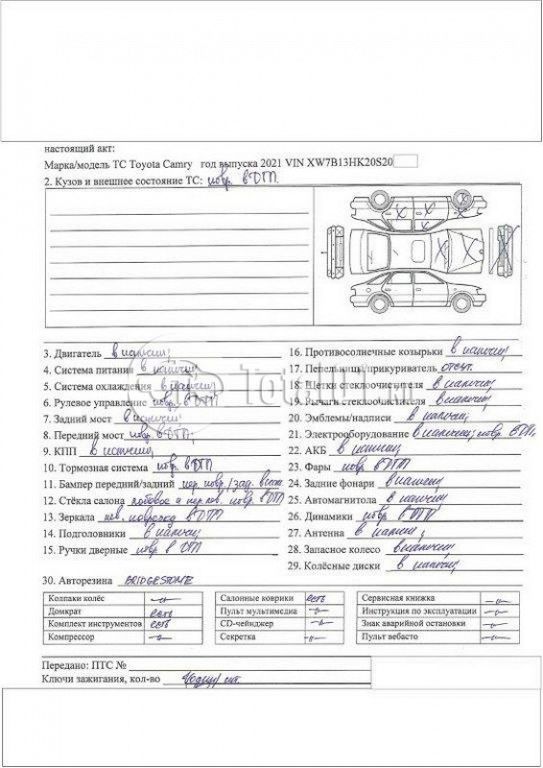 настоящий акт:
Марка/модель ТС Toyota Camry год выпуска 2021 VIN XW7B13HK20S20
2. Кузов и внешнее состояние ТС: повр. в ДТП.
3. Двигатель в наличии;
4. Система питания в наличии;
5. Система охлаждения в наличии;
6. Рулевое управление повр. в ДТП;
7. Задний мост в наличии;
8. Передний мост повр. в ДТП;
9. КПП в наличии;
10. Тормозная система повр. в ДТП
11. Бампер передний/задний пер. повр./зад.
12. Стёкла салона лобовое и пер. лев. повр. в ДТП
13. Зеркала лев. в ДТП
14. Подголовники в наличии;
15. Ручки дверные повр. в ДТП
16. Противосолнечные козырьки в наличии;
17. Пепельницы/прикуриватель отсут.
18. Щетки стеклоочистителя в наличии;
19. Рычаги стеклоочистителя в наличии;
20. Эмблемы/надписи в наличии;
21. Электрооборудование в наличии; повр. в ДТП;
22. АКБ в наличии;
23. Фары повр. в ДТП
24. Задние фонари в наличии;
25. Автомагнитола в наличии;
26. Динамики повр. в ДТП.
27. Антенна в наличии;
28. Запасное колесо в наличии;
29. Колёсные диски в наличии;
30. Авторезина BRIDGESTONE
Колпаки колёс –
Салонные коврики есть
Сервисная книжка –
Домкрат есть
Пульт мультимедиа –
Инструкция по эксплуатации –
Комплект инструментов есть
CD-чейнджер –
Знак аварийной остановки –
Компрессор –
Секретка –
Пульт вебасто –
Передано: ПТС №
Ключи зажигания, кол-во 1/один/ шт.